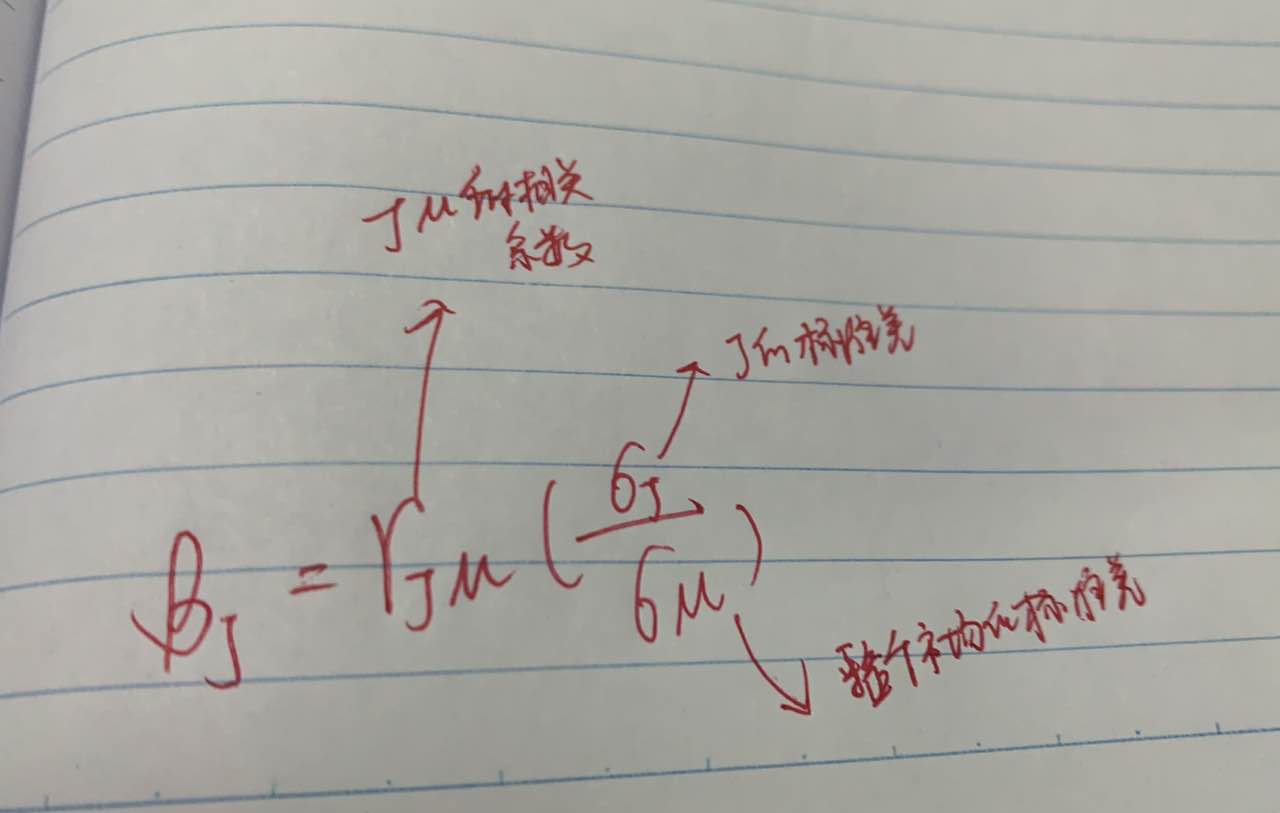 JM的相关
系数
J的标准差
βJ = rJM (σJ/σM)
整个市场的标准差